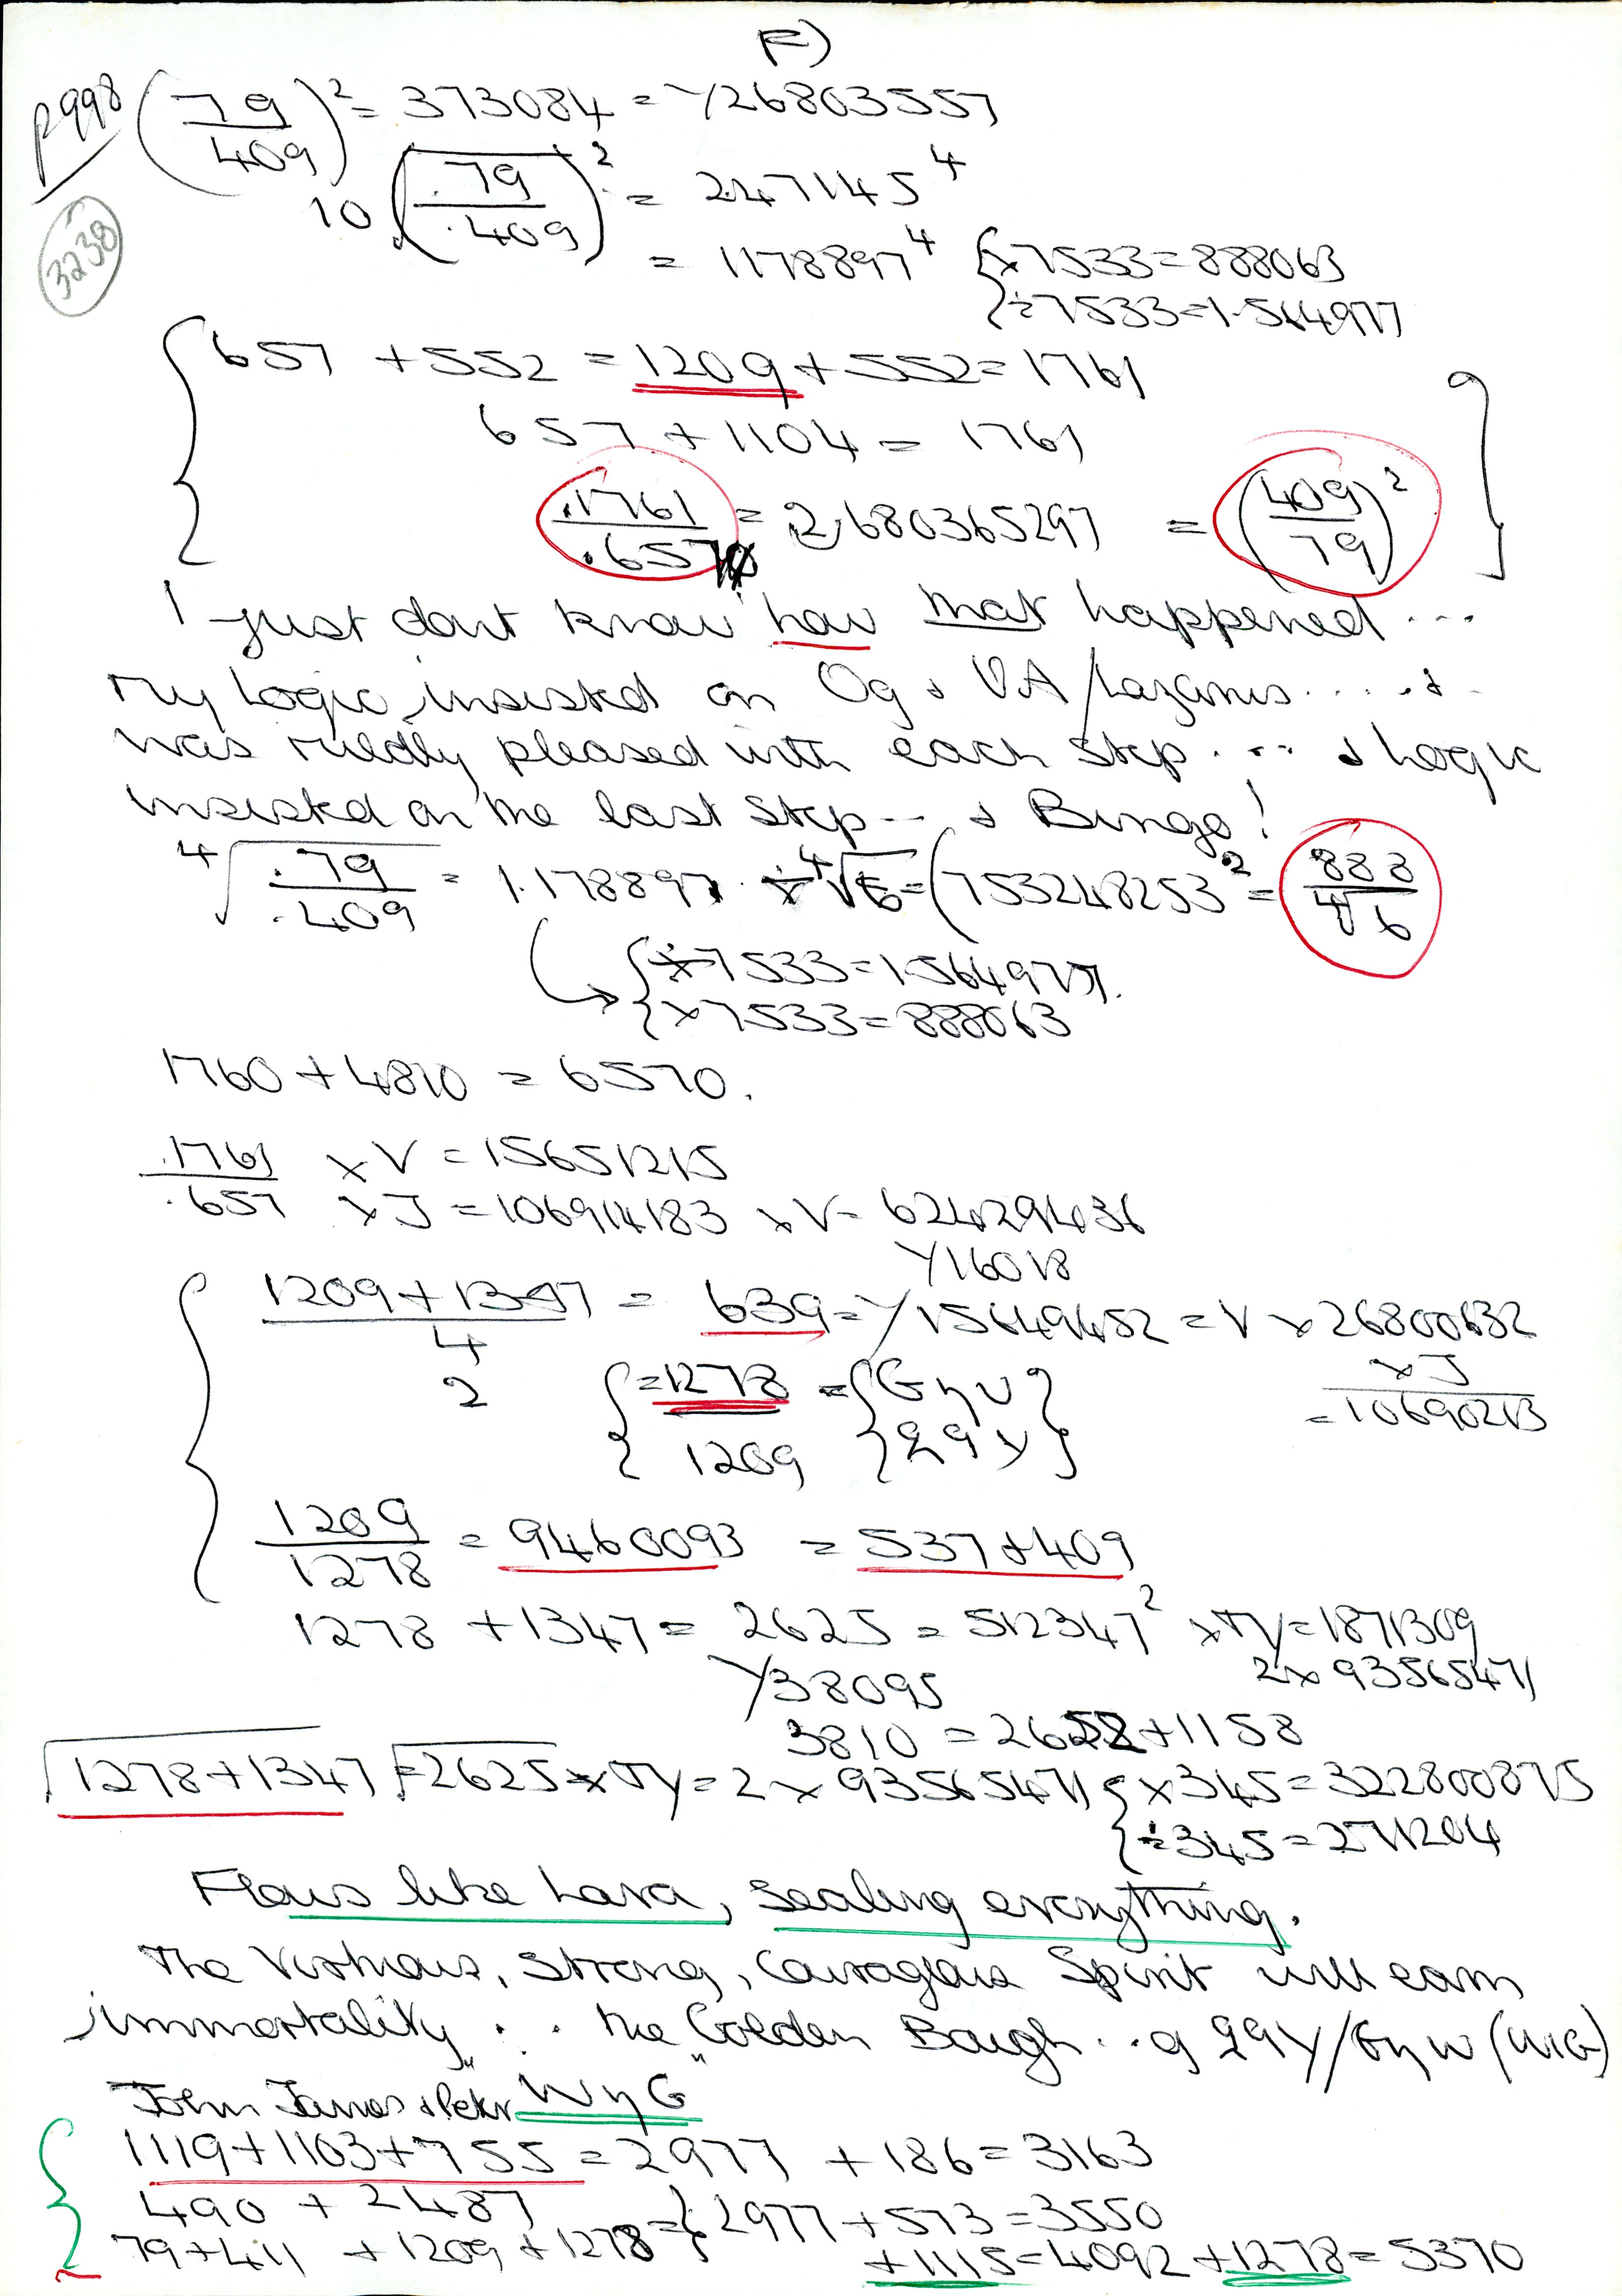 F)
P998 (79/409)² = 373084 = Y26803557
3238
10 (√.79/.409)² = 247145⁴
= 1178897⁴ {x7533=888063
÷7533=1.564977
{657 + 552 = 1209 + 552 = 1761
657 + 1104 = 1761
.1761/.657 = 2.680365297 = (409/79)² }
I just dont know how that happened ...
My Logic insisted on Og & VA/Lazarus..... &
was mildly pleased with each step.... & Logic
insisted on the last step... & Bingo!
⁴√.79/.409 = 1.178897 ⁴√6 = (753248253² = 888/⁴√6
{÷7533=1.564977.
x7533=888063
1760 + 4810 = 6570.
.1761/.657 x V = 15651215
x J = 106914183 x V = 624291436
Y16018
{1209+1347/4 = 639 = Y15649452 = V x 26800632
2 {=1278 = {GηU}
x J
= 10690213
1209 {99Y}
1209/1278 = 9460093 = 537+409
1278 + 1347 = 2625 = 512347² x πy = 1871309
Y38095 2x 93565471
3810 = 2652+1158
√1278+1347 = √2625 x πy = 2 x 93565471 {x345=322800875
÷345=271204
Flows like Lava, sealing everything.
The Virtuous, Strong, Courageous Spirit will earn
immortality... the "Golden Bough.. of 99Y/GηW (WIG)
John James & Peter WηG
{1119+1103+755 = 2977 + 186 = 3163
490 + 2487
79+411 + 1209 + 1278 = } 2977 + 573 = 3550
+1115 = 4092 + 1278 = 5370